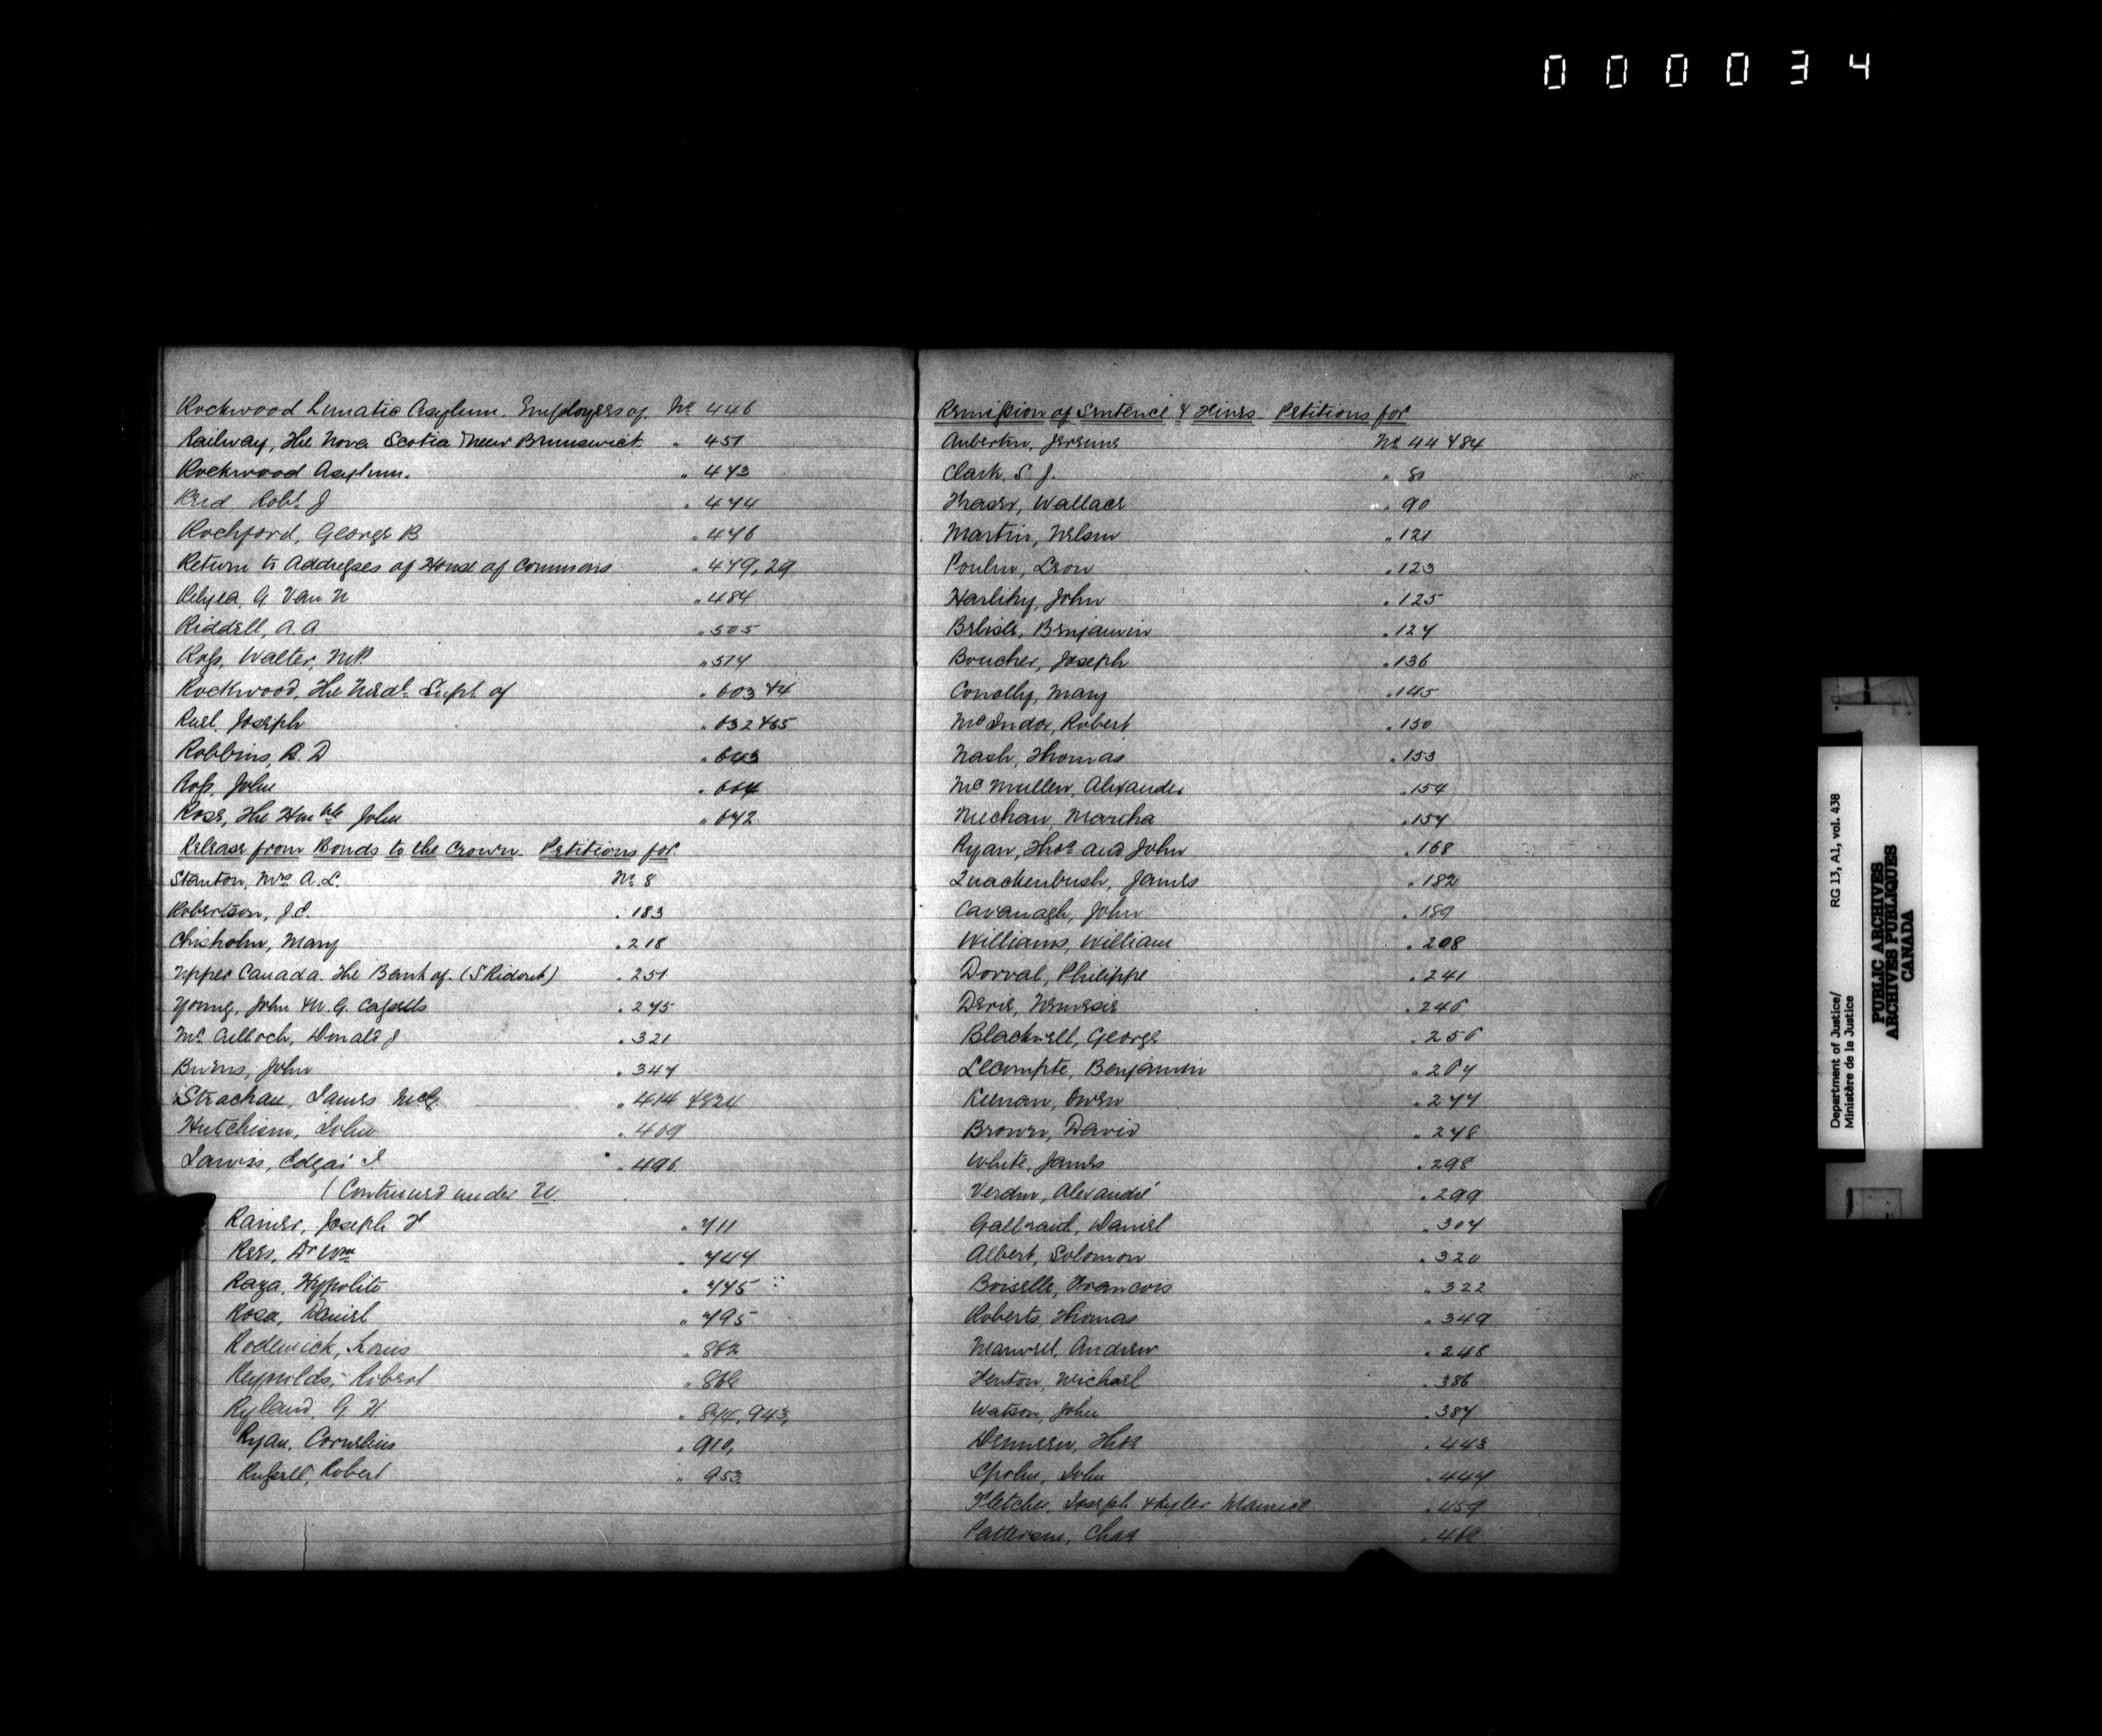 000034
Rockwood Lunatic Asylum. Employees of. No 446
Railway, The Nova Scotia & New Brunswick " 451
Rockwood Asylum. " 473
Reid Robt J " 474
Rochford, George B " 476
Return to Addresses of House of Commons " 479, 29
Relyea, G Van N " 484
Riddell, A A " 505
Ross, Walter, M.P. " 574
Rockwood, The Medl Supt of " 603 & 4
Ruel, Joseph " 632 & 65
Robbins, R. D " 643
Ross, John " 664
Rose, The Honble John " 672
Release from Bonds to the Crown Petitions for
Stanton, Mrs A. L. No 8
Robertson, J. C. " 183
Chisholm, Mary " 218
Upper Canada. The Bank of. (S Ridout) " 251
Young, John & W. G. Cassels " 275
Mc Culloch, Donald J " 321
Burns, John " 347
Strachan, James McG. " 414 & 524
Hutchison, John " 469
Jarvis, Edgar J " 496
(Continued under U.
Rainer, Joseph F " 711
Rees, Dr Wm " 747
Raza, Hyppolite " 775
Rosa, Daniel " 795
Roderick, Louis " 862
Reynolds, Robert
Ryland, G H 943,
Ryan, Cornelius " 910,
Russell, Robert " 953
Remission of Sentence & Fines Petitions for
Aubertin, Jereme No 44 & 84
Clark, S. J. " 80
Fraser, Wallace " 90
Martin, Nelson " 121
Poulin, Leon " 123
Harlihy, John " 125
Belisle, Benjamin " 127
Boucher, Joseph " 136
Conolly, Mary " 145
McIndoe, Robert " 150
Nash, Thomas " 153
McMullen, Alexander " 154
Mechan, Martha " 157
Ryan, Thos and John " 168
Quackenbush, James " 182
Cavanagh, John " 189
Williams, William " 208
Dorval, Philippe " 241
Derie, Nemesie " 246
Blackwell, George " 256
LeCompte, Benjamin " 267
Keenan, Owen " 277
Brown, David " 278
White, James " 298
Verdin, Alexandre " 299
Galbraid, Daniel " 307
Albert, Solomon " 320
Boiselle, Francois " 322
Roberts, Thomas " 349
Manvell, Andrew " 248
Fenton, Michael " 386
Watson, John " 387
Denneen, Thos " 443
Spohn, John " 447
Fletcher, Joseph & Kyler Maurice " 459
Patterson, Chas
Department of Justice/
Ministère de la Justice
RG 13, A1, vol. 438
PUBLIC ARCHIVES
ARCHIVES PUBLIQUES
CANADA